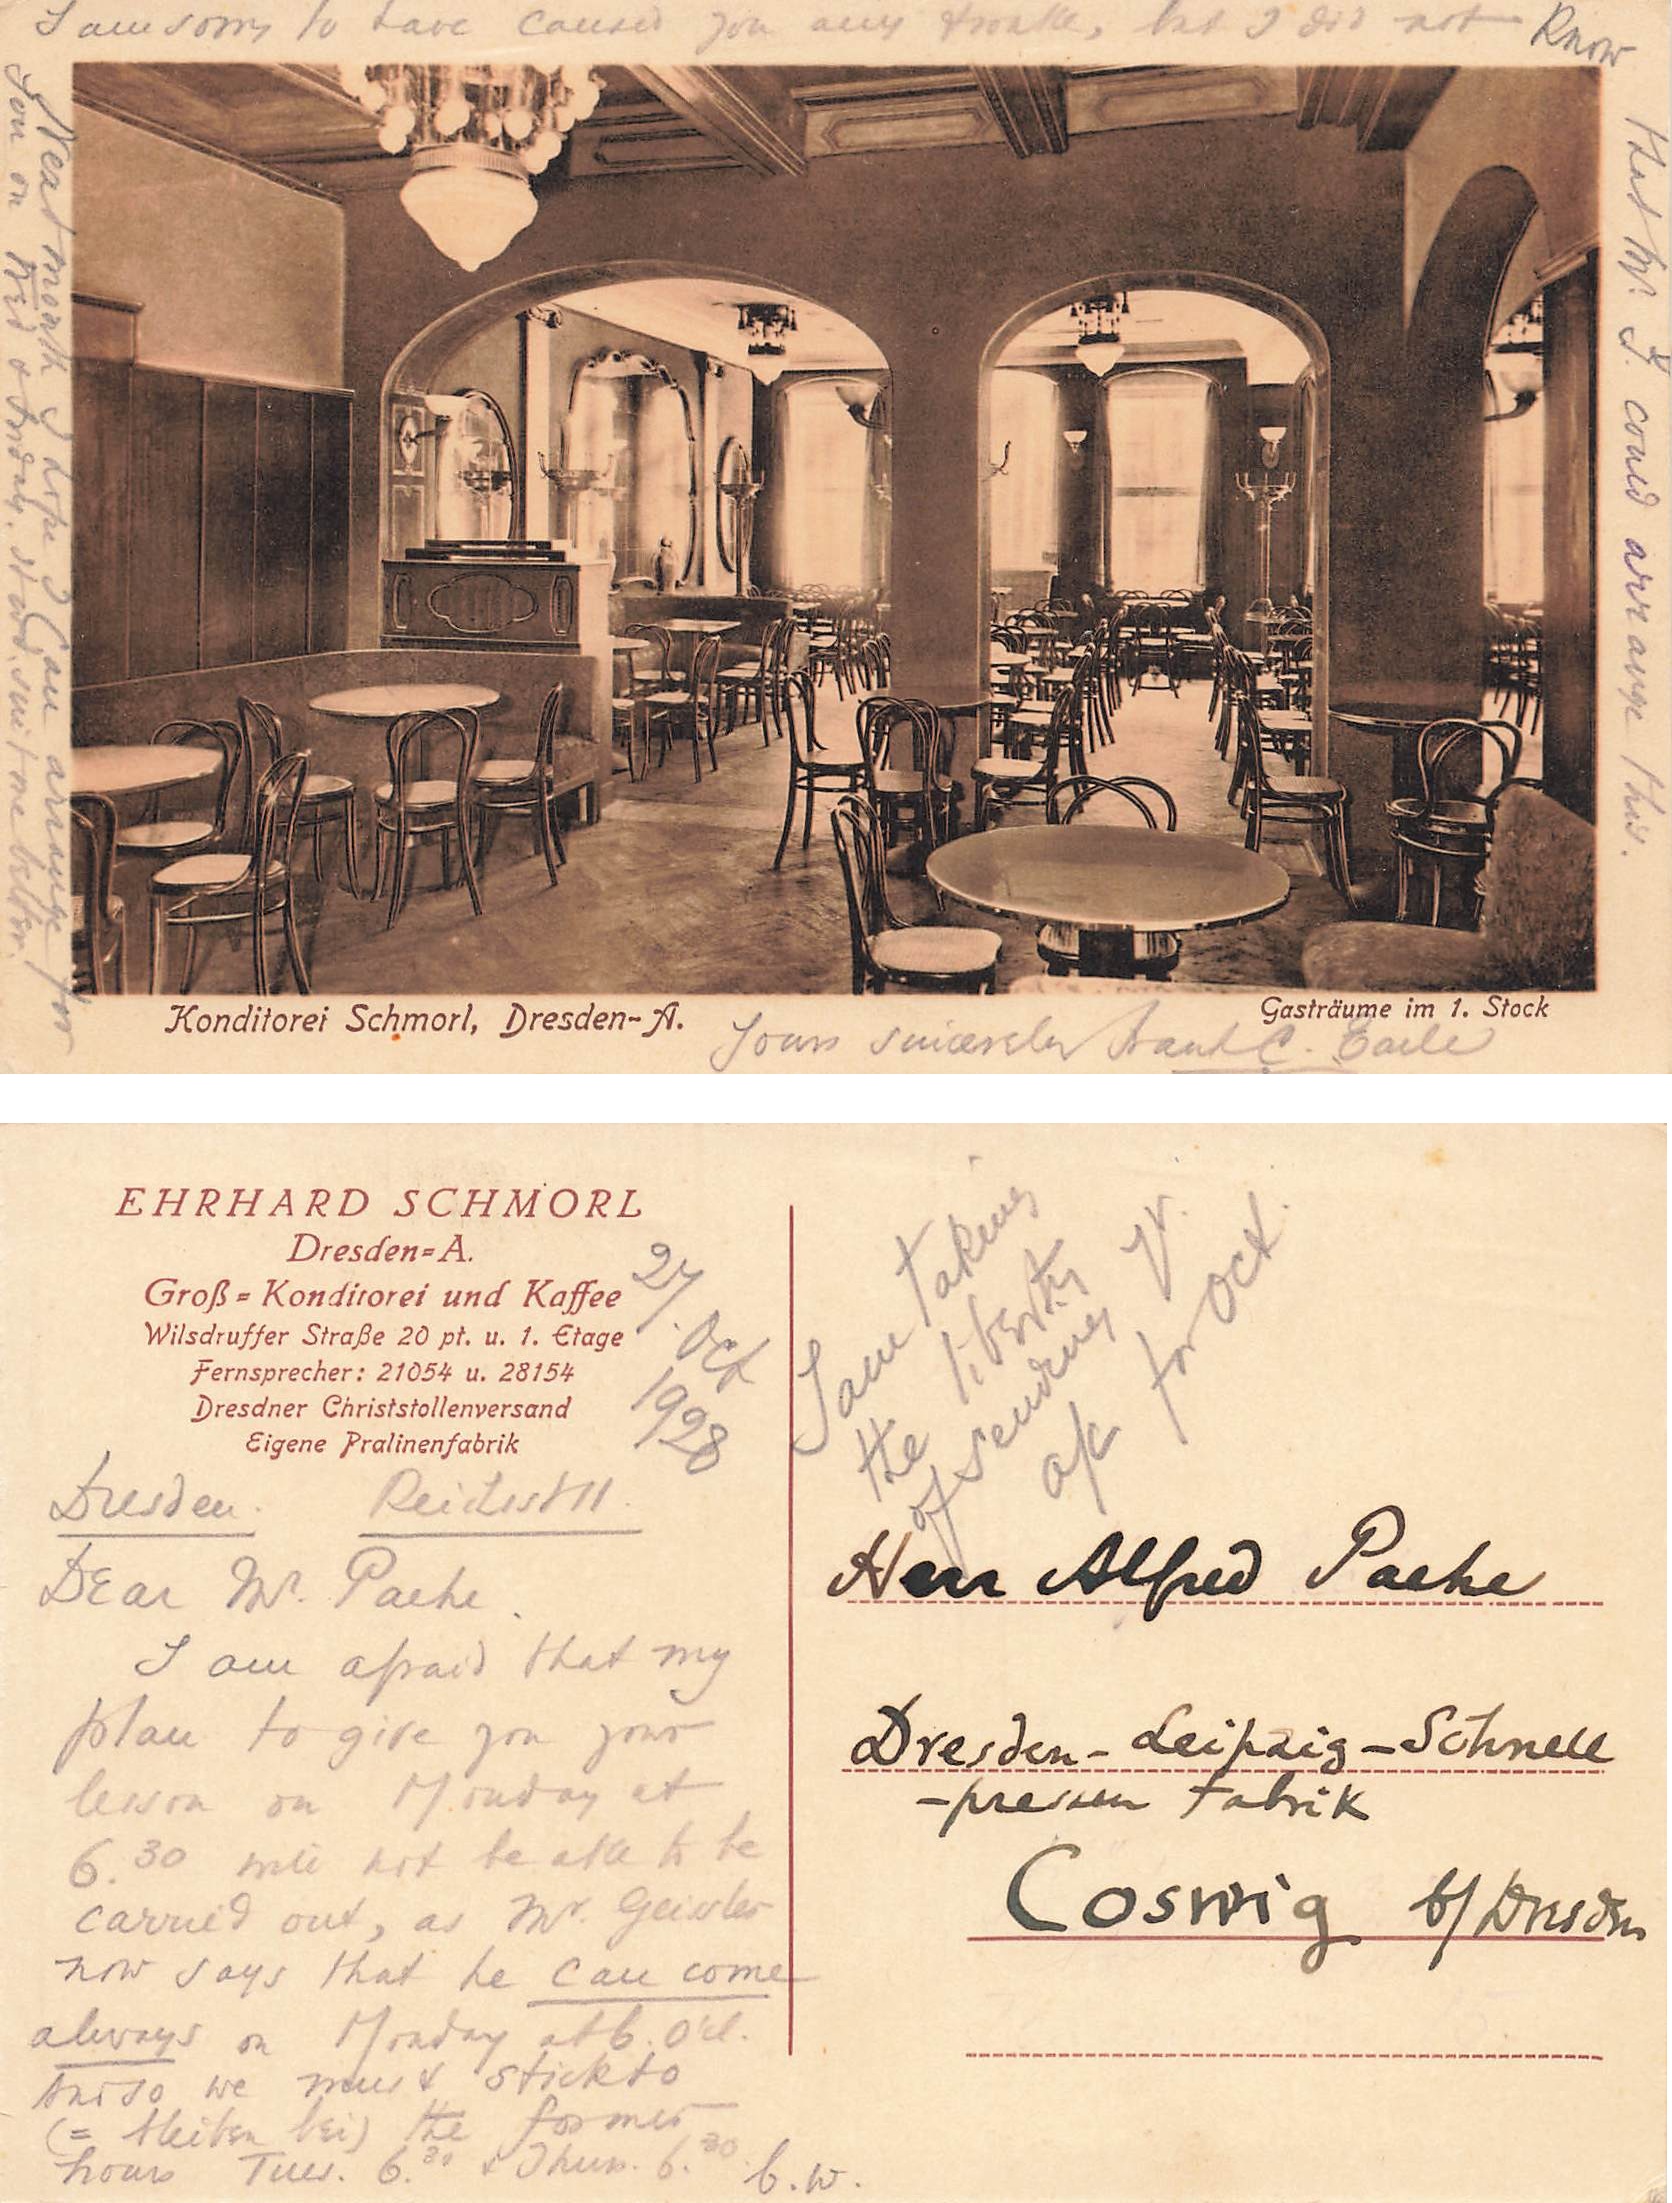 I am sorry to have caused you any trouble, but I did not know
that Mr. G. could arrange this.
Next month I hope I can arrange for
you on Wed & Friday. it wd. suit me better.
Konditorei Schmorl, Dresden-A.
Gasträume im 1. Stock
Yours sincerely Frank C. Earle
EHRHARD SCHMORL
Dresden=A.
Groß=Konditorei und Kaffee
Wilsdruffer Straße 20 pt. u. 1. Etage
Fernsprecher: 21054 u. 28154
Dresdner Christstollenversand
Eigene Pralinenfabrik
27. Oct
1928
Dresden. Reichsst 11.
Dear Mr. Paehe.
I am afraid that my
plan to give you your
lesson on Monday at
6.30 will not be able to be
carried out, as Mr. Geissler
now says that he can come
always on Monday at 6. o'cl.
And so we must stick to
(= bleiben bei) the former
hours Tues. 6.30 & Thurs. 6.30.
b.w.
I am taking
the liberty
of sending yr.
a/c for Oct.
Herr Alfred Paehe
Dresden-Leipzig-Schnell
-pressen Fabrik
Coswig b/Dresden